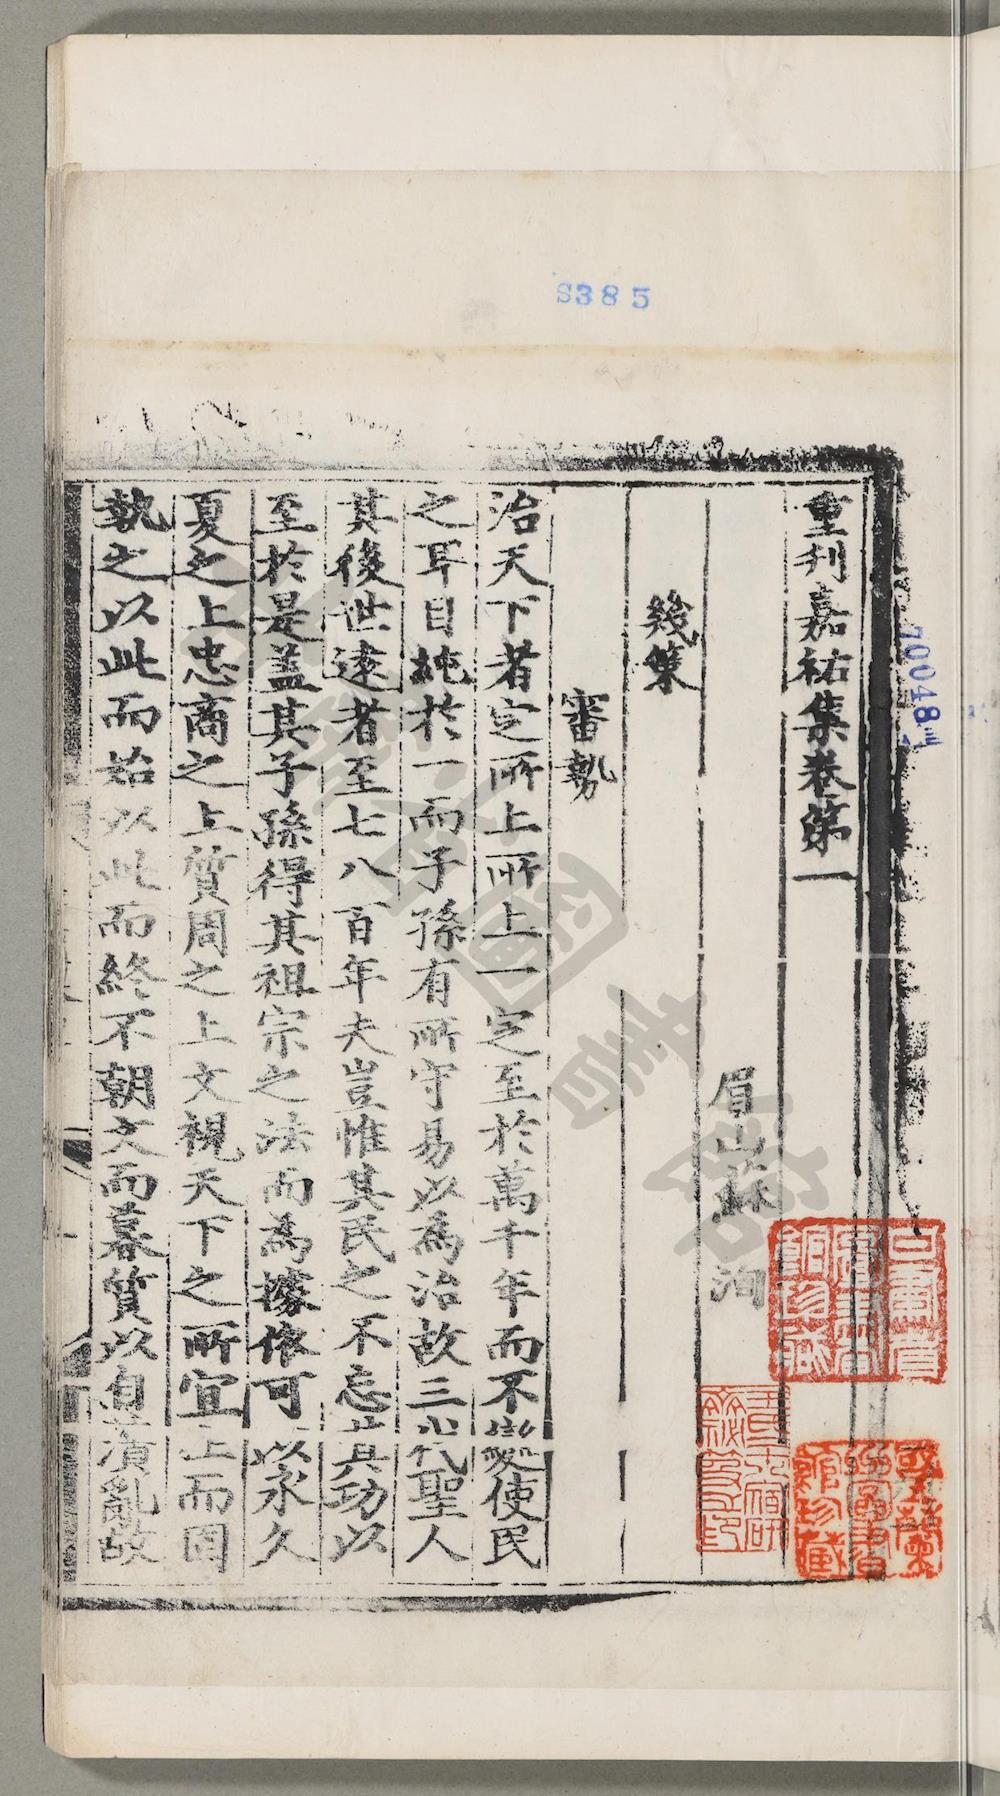 S385
70048
重刋嘉祐集卷第一
眉山蘇洵
幾策
審勢
治天下者定所上所上一定至於萬千年而不變使民
之耳目純於一而子孫有所守易以為治故三代聖人
其後世逺者至七八百年夫豈惟其民之不忘其功以
至於是盖其子孫得其祖宗之法而為據依可以永久
夏之上忠商之上質周之上文視天下之所宜上而固
執之以此而始以此而終不朝文而暮質以自潰亂故